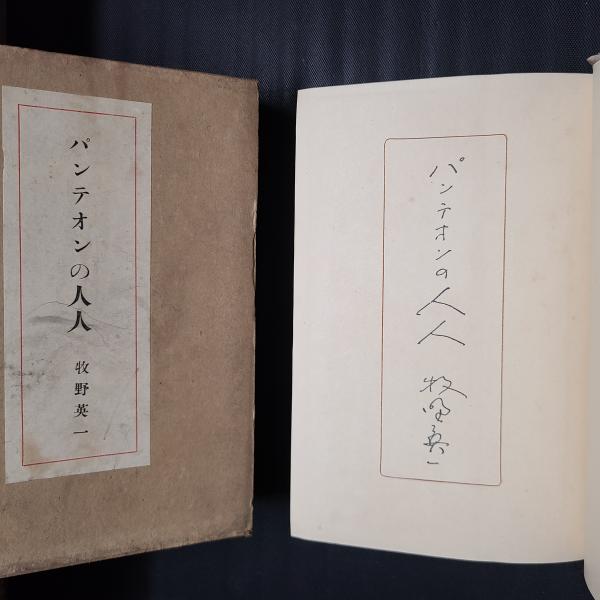 パンテオンの人人
牧野英一
パンテオンの人人
牧野英一